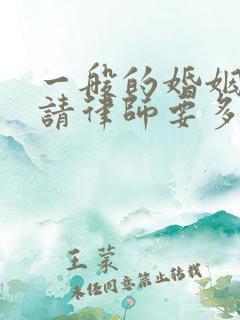 一般的婚姻
請律師要多
王葉
未經同意禁止轉載